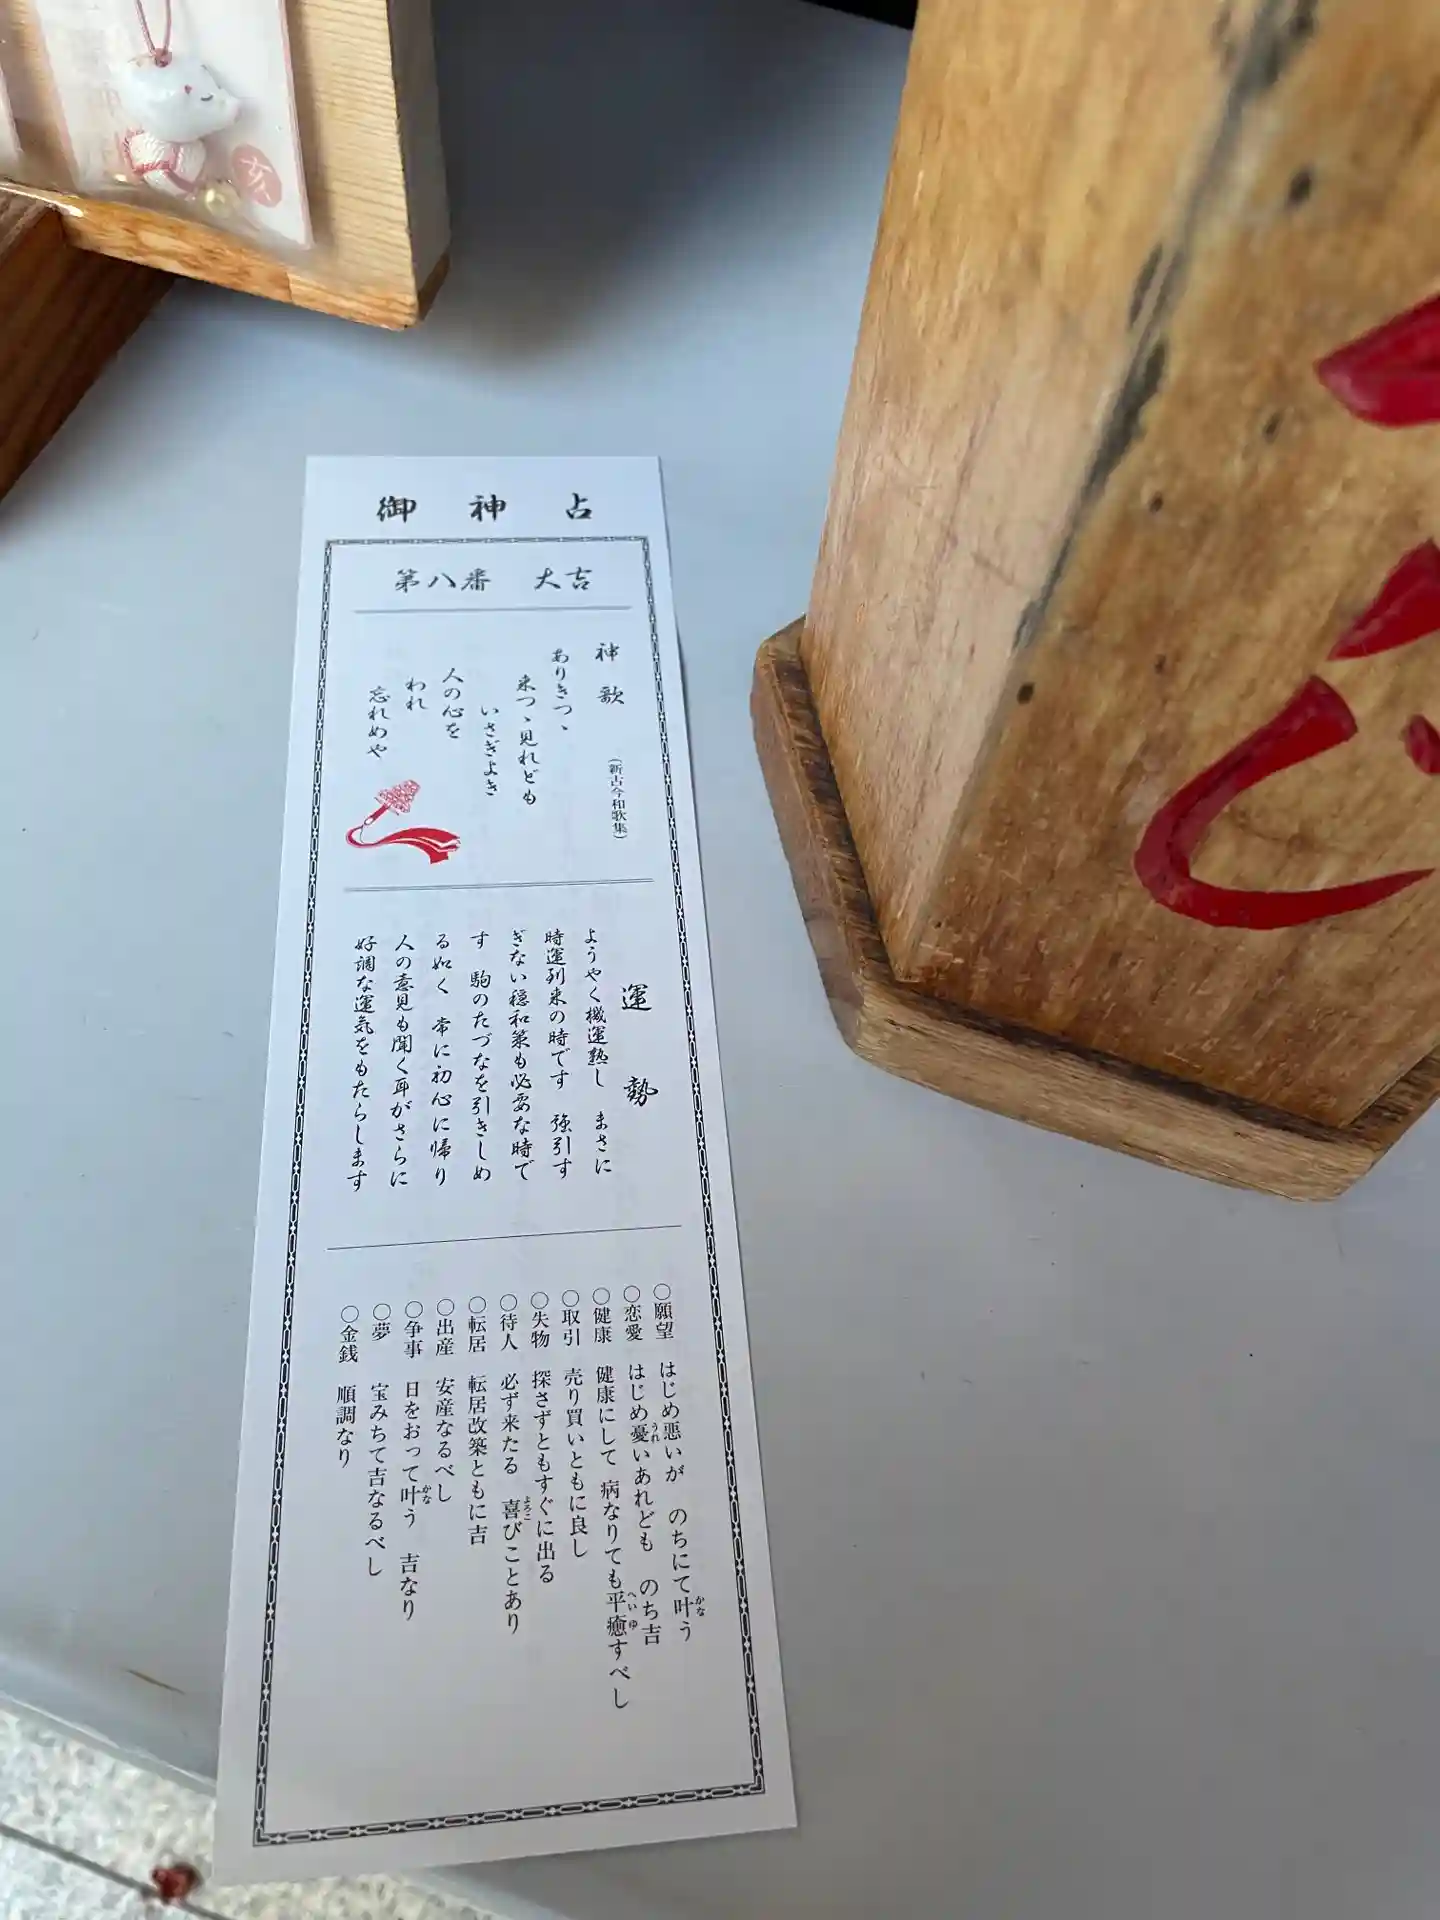 御神占
第八番　大吉
神歌
(新古今和歌集)
ありきつゝ
来つゝ見れども
いさぎよき
人の心を
われ
忘れめや
運勢
ようやく機運熟し　まさに
時運到来の時です　強引す
ぎない穏和策も必要な時で
す　駒のたづなを引きしめ
る如く　常に初心に帰り
人の意見も聞く耳がさらに
好調な運気をもたらします
○願望　はじめ悪いが　のちにて叶う
かな
○恋愛　はじめ憂いあれども　のち吉
うれ
○健康　健康にして　病なりても平癒すべし
へいゆ
○取引　売り買いともに良し
○失物　探さずともすぐに出る
○待人　必ず来たる　喜びことあり
よろこ
○転居　転居改築ともに吉
○出産　安産なるべし
○争事　日をおって叶う　吉なり
かな
○夢　宝みちて吉なるべし
○金銭　順調なり
亥